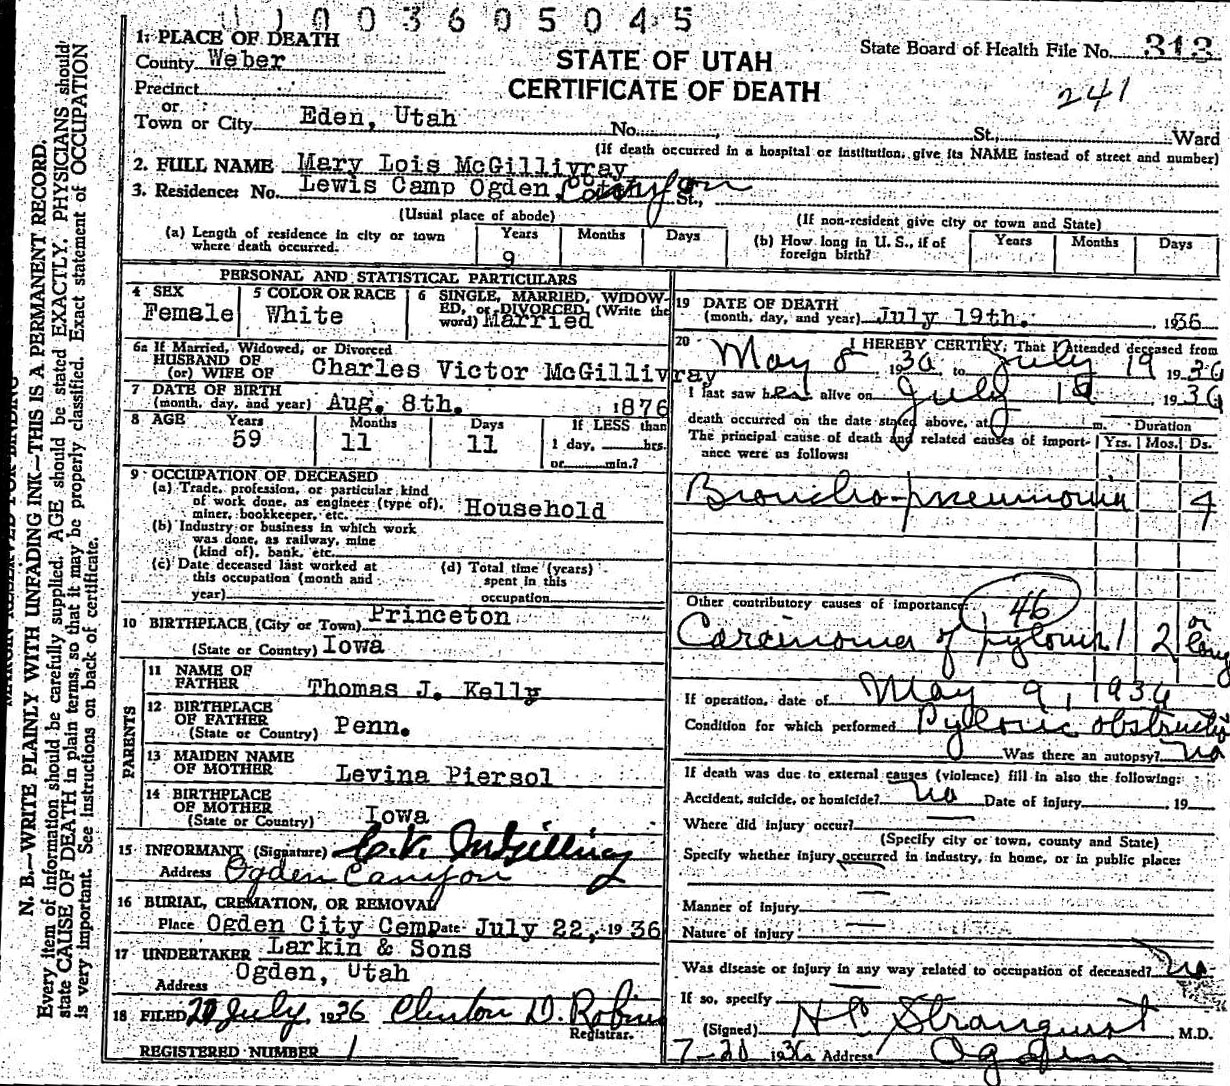 1003605045
1. PLACE OF DEATH
County Weber
STATE OF UTAH
CERTIFICATE OF DEATH
State Board of Health File No. 313
241
Precinct
or
Town or City Eden, Utah No. St., Ward
(If death occurred in a hospital or institution, give its NAME instead of street and number)
2. FULL NAME Mary Lois McGillivray
3. Residence: No. Lewis Camp Ogden Canyon St.,
(Usual place of abode) (If non-resident give city or town and State)
(a) Length of residence in city or town where death occurred. Years 9 Months Days
(b) How long in U. S., if of foreign birth? Years Months Days
PERSONAL AND STATISTICAL PARTICULARS
4 SEX Female
5 COLOR OR RACE White
6 SINGLE, MARRIED, WIDOWED, or DIVORCED (Write the word) Married
6a If Married, Widowed, or Divorced
HUSBAND OF
(or) WIFE OF Charles Victor McGillivray
7 DATE OF BIRTH
(month, day, and year) Aug. 8th. 1876
8 AGE Years 59 Months 11 Days 11 If LESS than
1 day, hrs.
or min.?
9 OCCUPATION OF DECEASED
(a) Trade, profession, or particular kind
of work done, as engineer (type of),
miner, bookkeeper, etc. Household
(b) Industry or business in which work
was done, as railway, mine
(kind of), bank, etc.
(c) Date deceased last worked at
this occupation (month and
year)
(d) Total time (years)
spent in this
occupation
10 BIRTHPLACE (City or Town) Princeton
(State or Country) Iowa
PARENTS
11 NAME OF
FATHER Thomas J. Kelly
12 BIRTHPLACE
OF FATHER
(State or Country) Penn.
13 MAIDEN NAME
OF MOTHER Levina Piersol
14 BIRTHPLACE
OF MOTHER
(State or Country) Iowa
15 INFORMANT (Signature) C.V. McGillivray
Address Ogden Canyon
16 BURIAL, CREMATION, OR REMOVAL
Place Ogden City Cem Date July 22, 1936
17 UNDERTAKER Larkin & Sons
Address Ogden, Utah
18 FILED 20 July, 1936 Clinton D. Robins
Registrar.
REGISTERED NUMBER 1
19 DATE OF DEATH
(month, day, and year) July 19th. 1936
20 I HEREBY CERTIFY, That I attended deceased from
May 8 1936, to July 19 1936
I last saw her alive on July 19 1936
death occurred on the date stated above, at m. Duration
The principal cause of death and related causes of importance were as follows: Yrs. Mos. Ds.
Broncho-pneumonia 4
Other contributory causes of importance: 46
Carcinoma of pylorus 1 2 or long
If operation, date of May 9, 1936
Condition for which performed Pyloric obstructio
Was there an autopsy? no
If death was due to external causes (violence) fill in also the following:
Accident, suicide, or homicide? no Date of injury 19
Where did injury occur?
(Specify city or town, county and State)
Specify whether injury occurred in industry, in home, or in public place:
Manner of injury
Nature of injury
Was disease or injury in any way related to occupation of deceased? no
If so, specify
(Signed) H.C. Stranquist M.D.
7-20 1936 Address Ogden
N. B.—WRITE PLAINLY WITH UNFADING INK—THIS IS A PERMANENT RECORD.
Every item of information should be carefully supplied. AGE should be stated EXACTLY. PHYSICIANS should
state CAUSE OF DEATH in plain terms, so that it may be properly classified. Exact statement of OCCUPATION
is very important. See instructions on back of certificate.